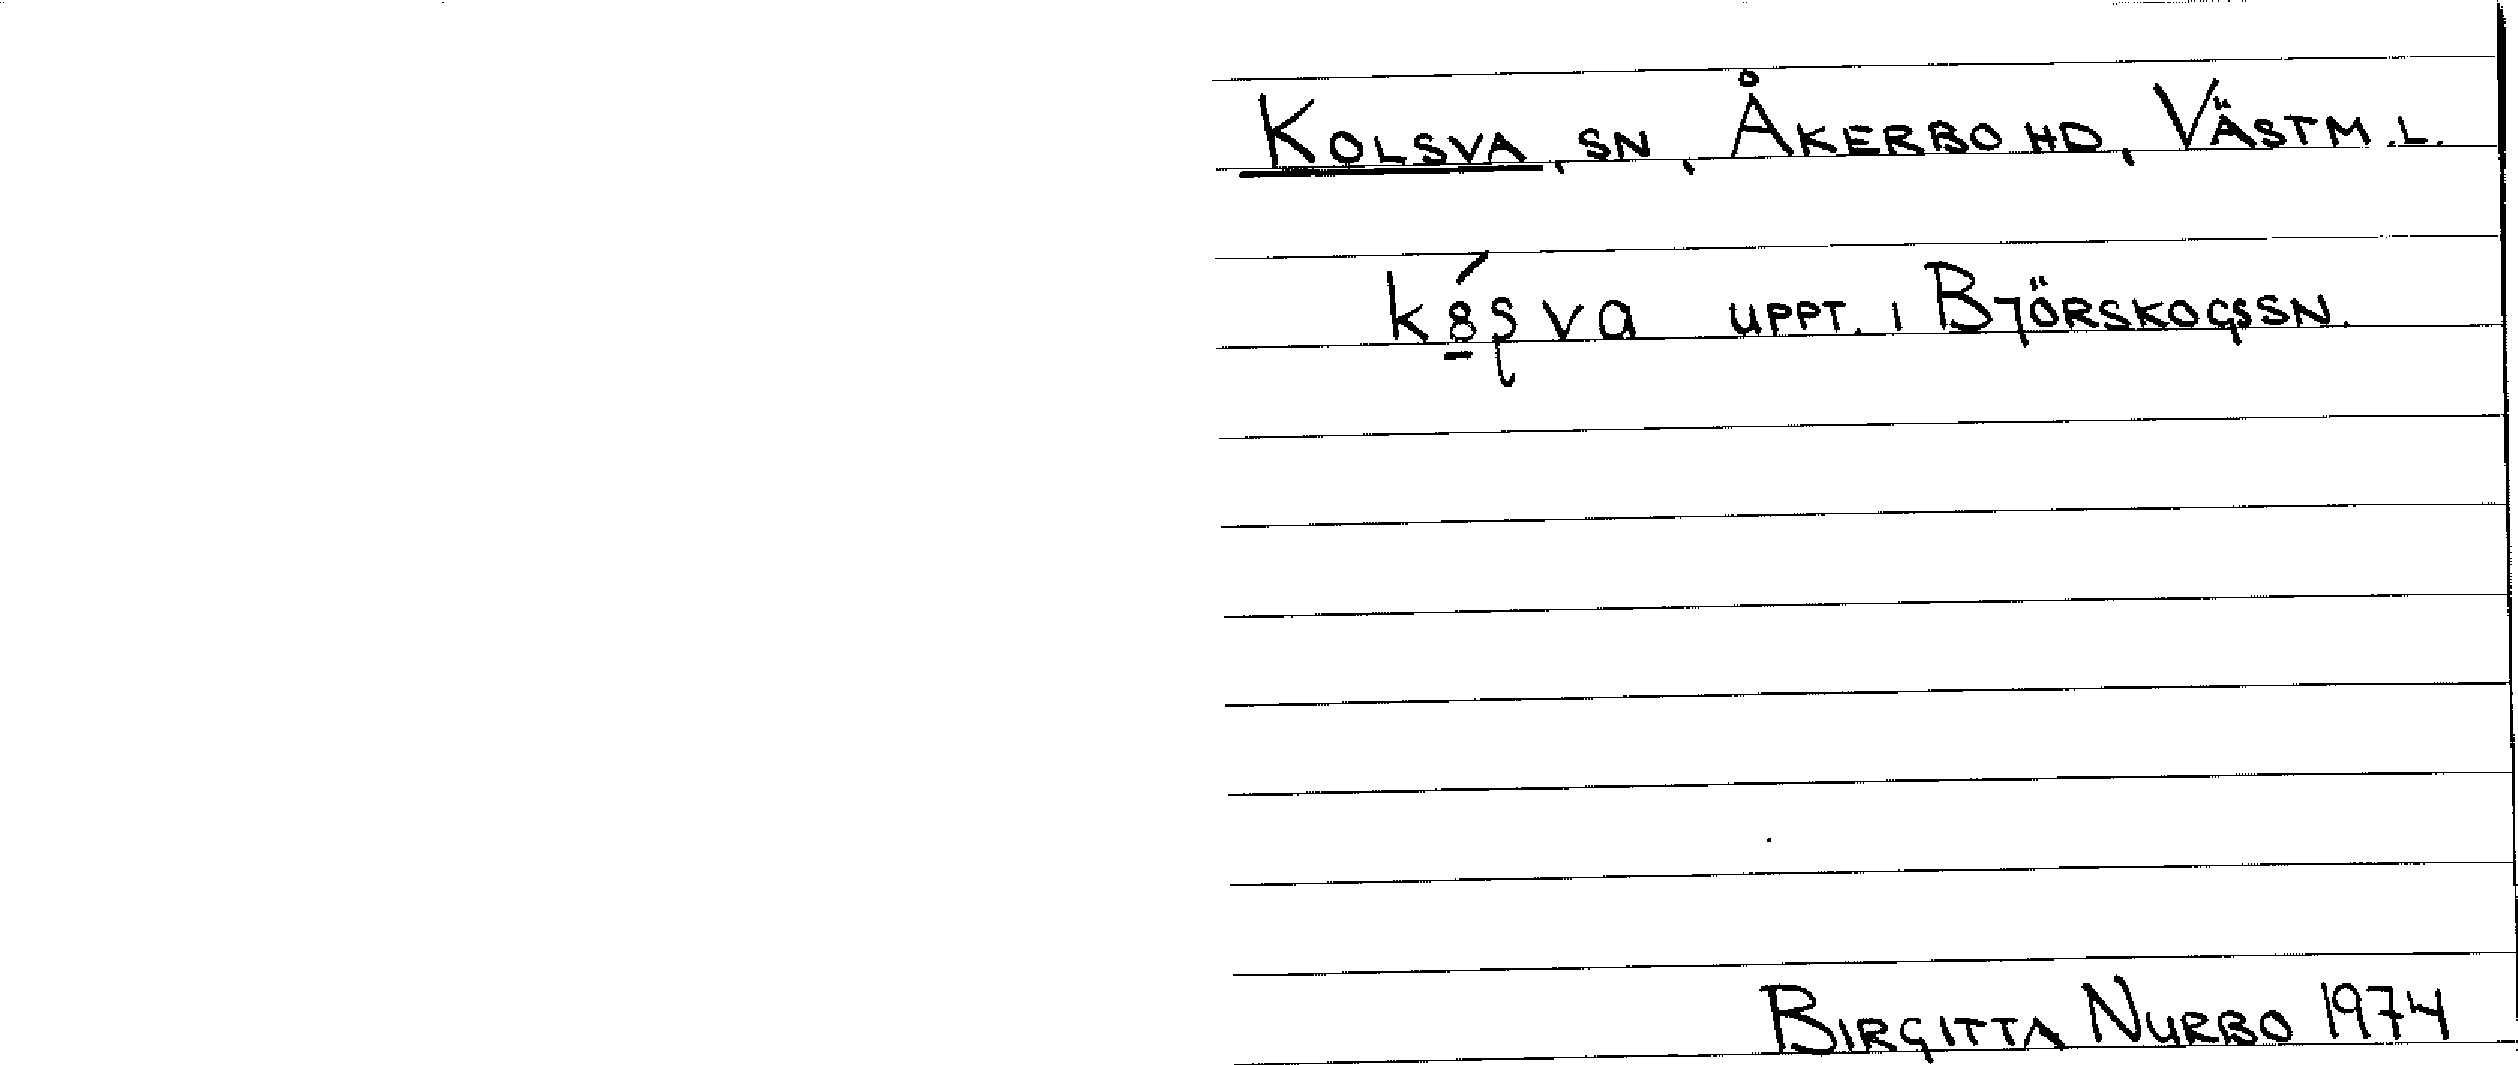 KOLSVA, SN, ÅKERBO HD, VÄSTM.L.
k8̱́ʂva UPPT. I BJÖRSKOGSSN.
BIRGITTA NURBO 1974